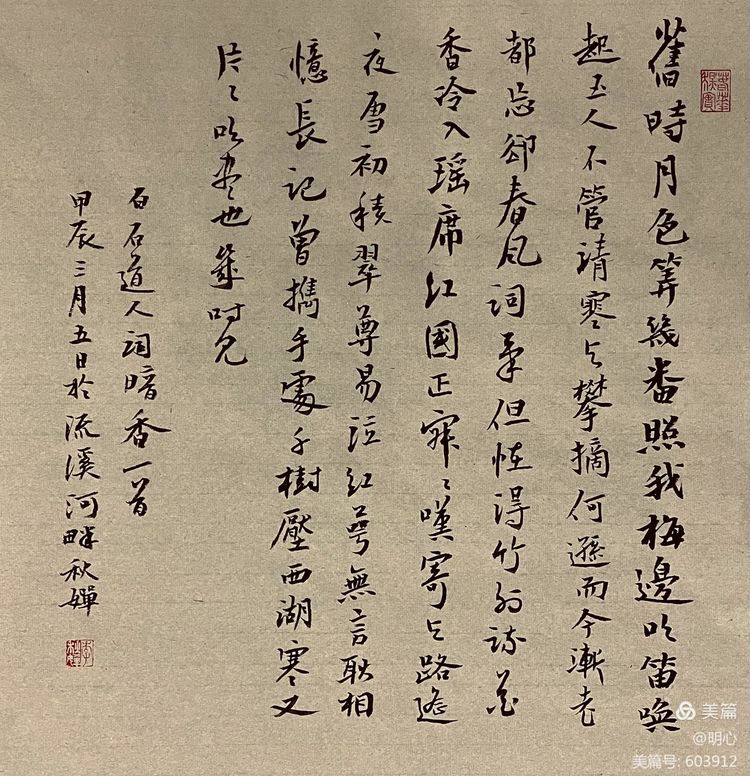 舊時月色筭幾番照我梅邊吹笛喚
起玉人不管清寒与攀摘何遜而今漸老
都忘卻春風詞筆但怪得竹外疏花
香冷入瑶席江國正寂〻嘆寄与路遙
夜雪初積翠尊易泣紅萼無言耿相
憶長記曾攜手處千樹壓西湖寒又
片〻吹盡也幾時見
白石道人詞暗香一首
甲辰三月五日於流溪河畔秋嬋
美篇
@明心
美篇号: 603912